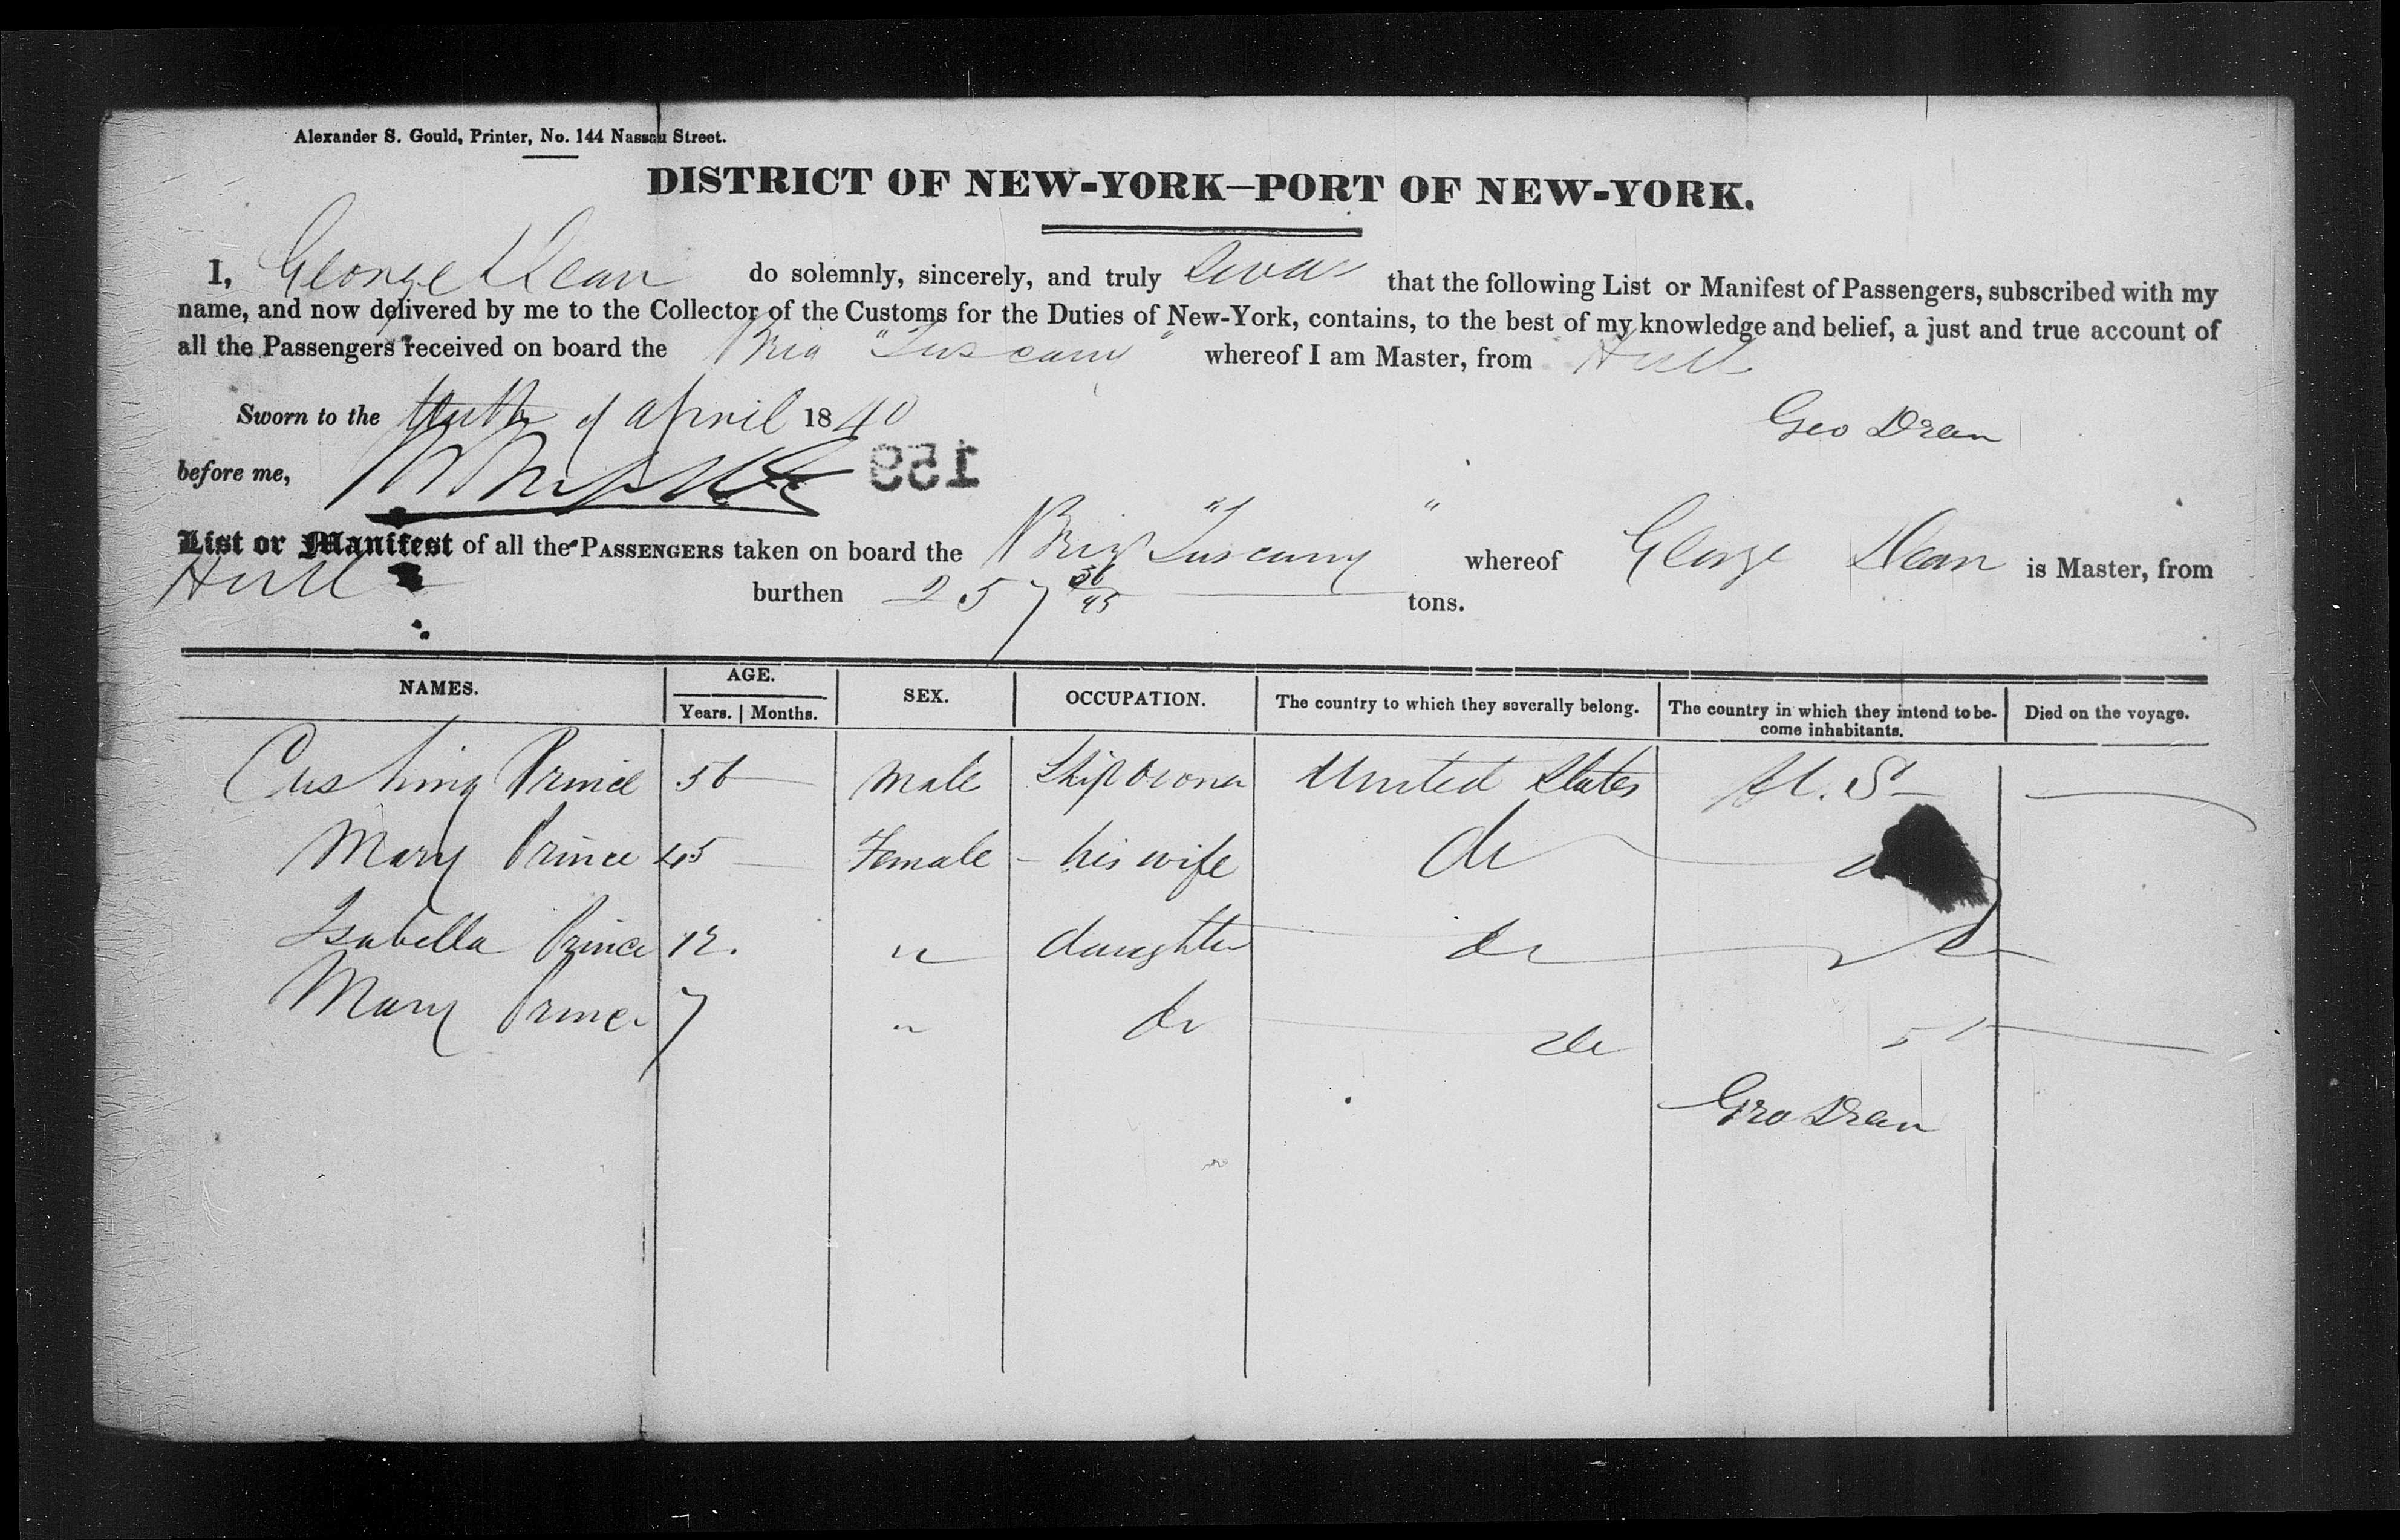 Alexander S. Gould, Printer, No. 144 Nassau Street.
DISTRICT OF NEW-YORK—PORT OF NEW-YORK.
I, George Dean do solemnly, sincerely, and truly Swear that the following List or Manifest of Passengers, subscribed with my
name, and now delivered by me to the Collector of the Customs for the Duties of New-York, contains, to the best of my knowledge and belief, a just and true account of
all the Passengers received on board the Brig "Tuscany" whereof I am Master, from Hull
Sworn to the of April 1840
Geo Dean
before me,
159
List or Manifest of all the PASSENGERS taken on board the Brig "Tuscany" whereof George Dean is Master, from
Hull burthen 257 36/95 tons.
NAMES. AGE. SEX. OCCUPATION. The country to which they severally belong. The country in which they intend to be- Died on the voyage.
Years. | Months. come inhabitants.
Cushing Prince 56 Male Ship Owner United States U. S
Mary Prince 45 Female his wife do
Isabella Prince 12. " daughter do do
Mary Prince 7 " do do
Geo Dean